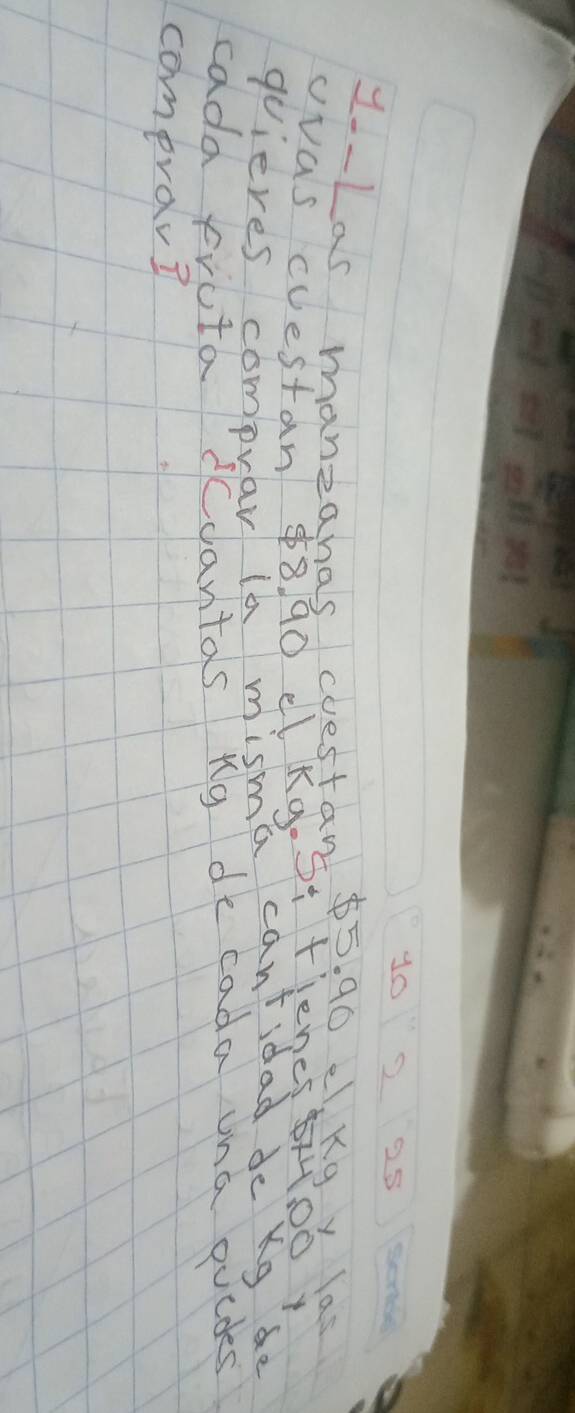 10 2 25 Scribe
1.-Las manzanas cuestan $5.90 el Kg y las
uvas cuestan $8.90 el Kg. Si tienes $74.00 y
quieres comprar la misma cantidad de Kg de
cada fruta ¿Cuantas Kg de cada una puedes
comprar?